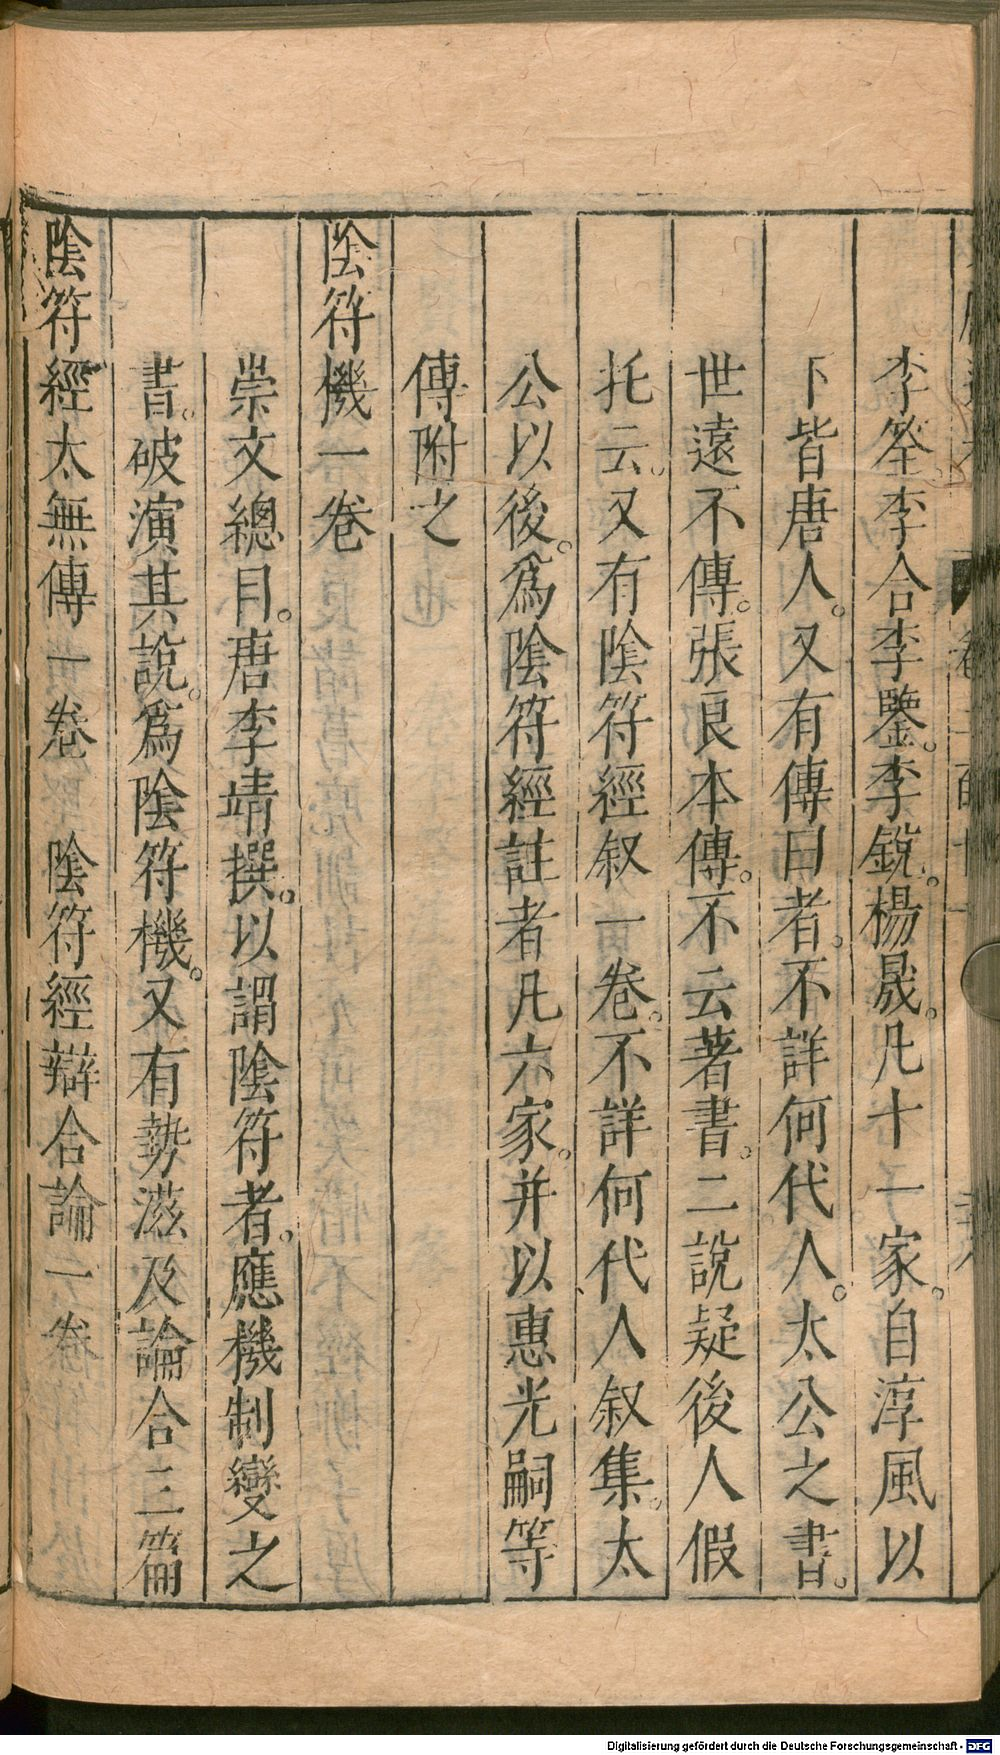 李筌。李合李鑒。李銳。楊晟。凡十一家。自淳風以
下皆唐人。又有傳曰者。不詳何代人。太公之書。
世遠不傳。張良本傳。不云著書。二說疑後人假
托云。又有陰符經叙一卷。不詳何代人叙集。太
公以後。爲陰符經註者凡六家。并以惠光嗣等
傳附之
陰符機一卷
崇文總目。唐李靖撰。以謂陰符者。應機制變之
書。破演其說。爲陰符機。又有勢滋及論合三篇
陰符經太無傳一卷 陰符經辯合論一卷
Digitalisierung gefördert durch die Deutsche Forschungsgemeinschaft - DFG